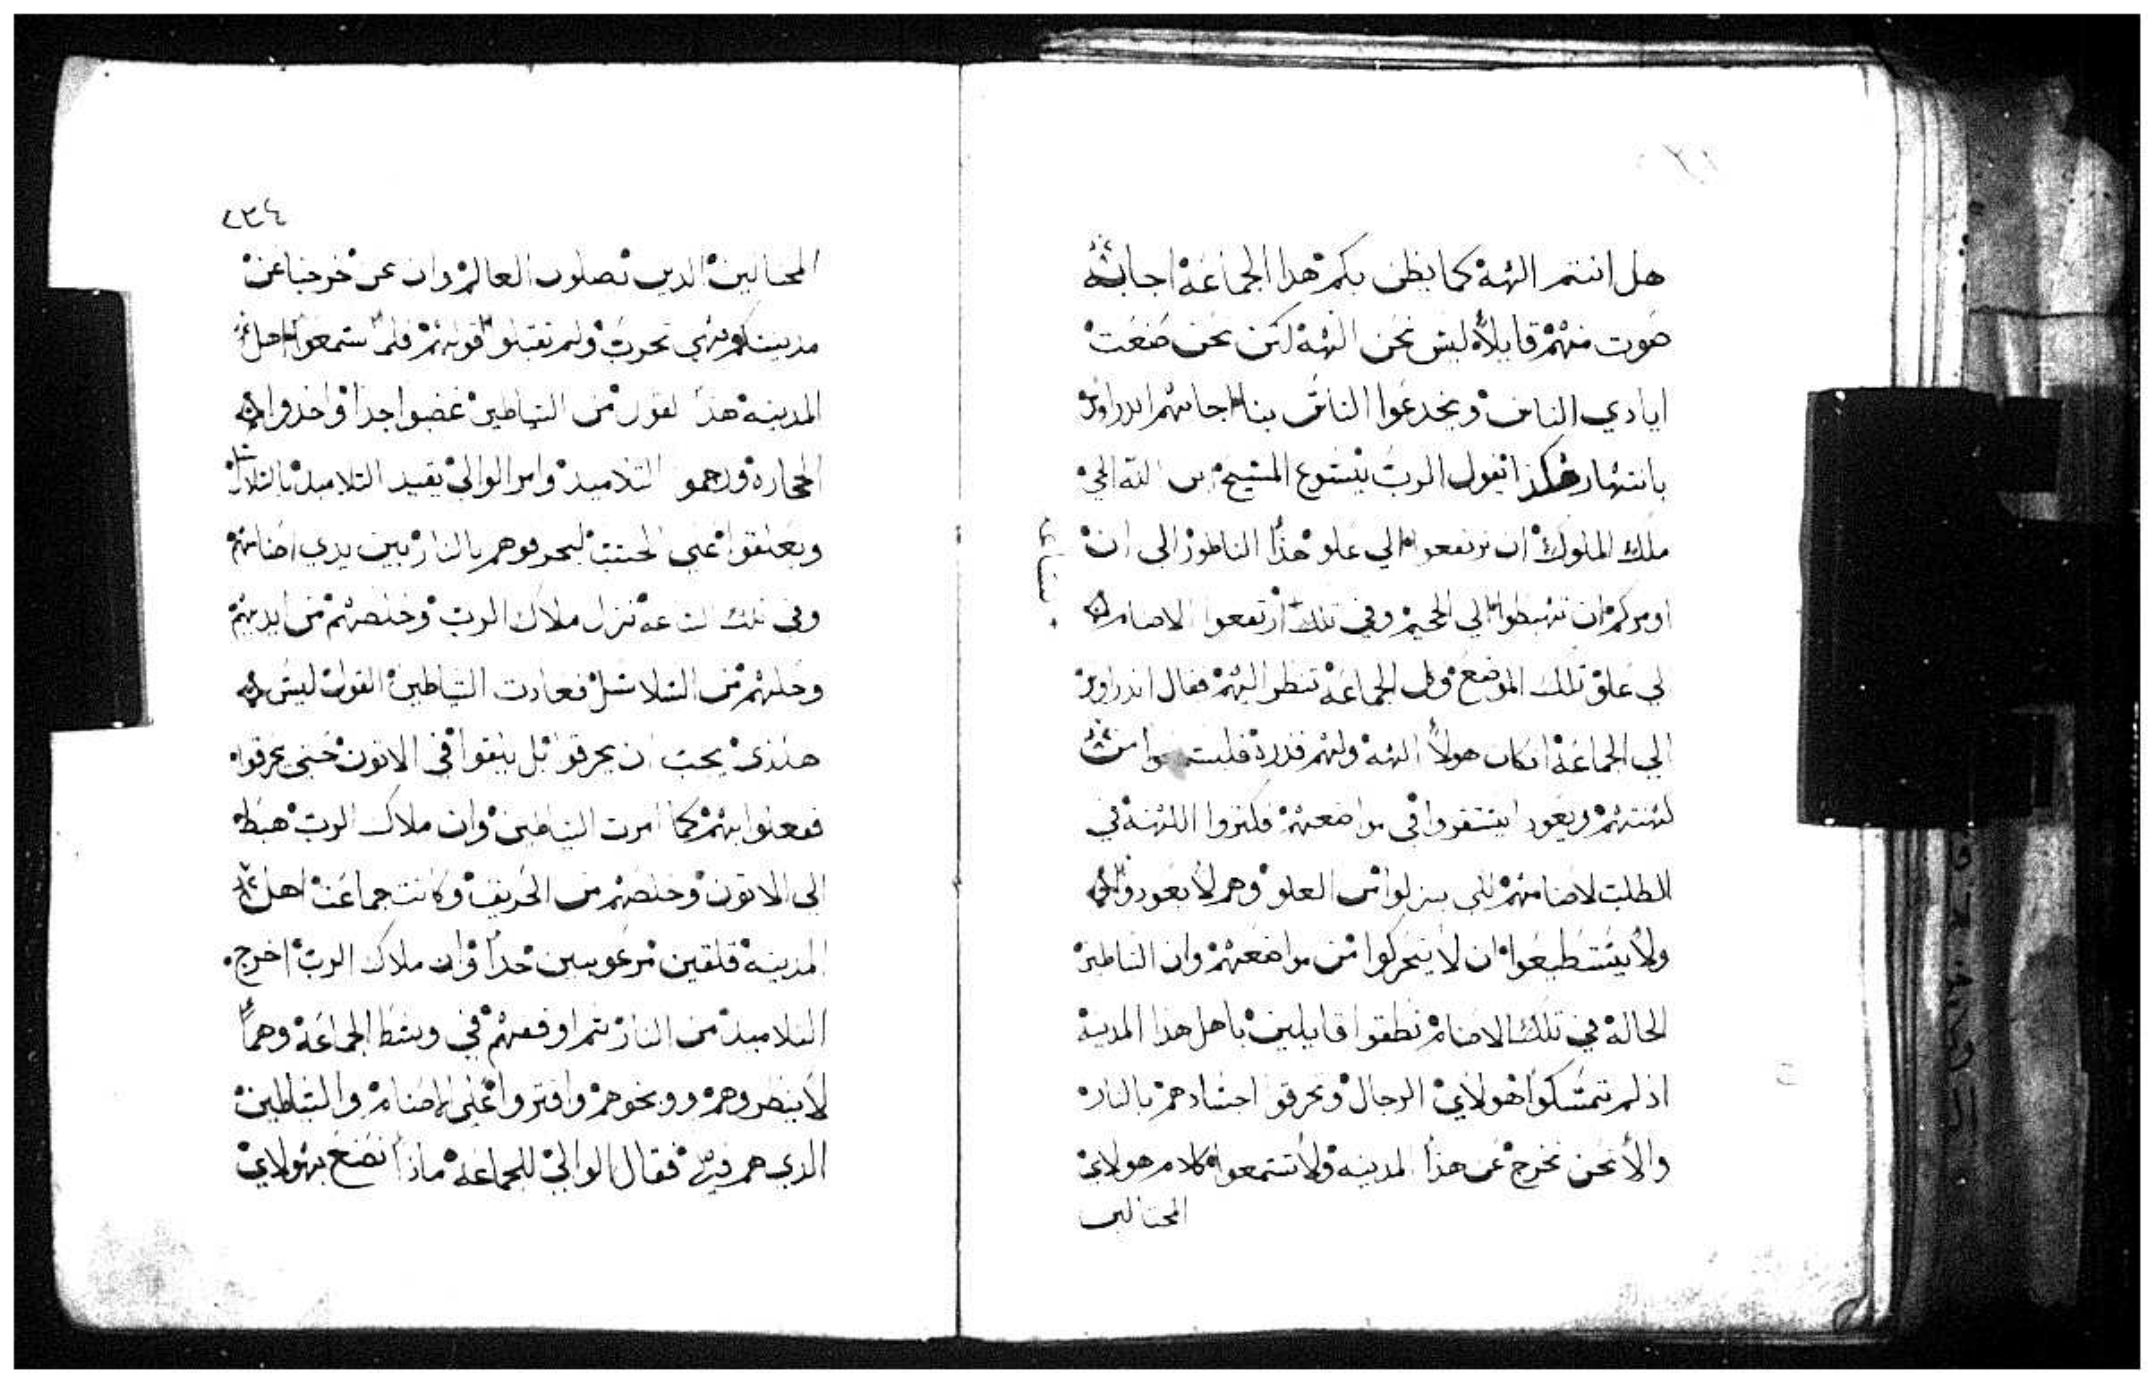 هل انتم الهه كما يظن بكم هدا الجماعة اجابه
صوت منهم قايلاً ليس نحن الهه لكن نحن صنعت
ايادي الناس ويخدعوا الناس بنا اجابهم اندراوس
بانتهار هكذا يقول الرب يسوع المسيح ابن الله الحي
ملك الملوك ان ترتفعوا الي علو هذا الناطور الى ان
اومركم ان تهبطوا الي الجحيم وفي تلك ارتفعوا الاصنام
الي علو تلك الموضع وكل الجماعة تنظر اليهم فقال اندراوس
الي الجماعة ان كان هولاً الهه ولهم قدرة من
كهنتهم ويعود ايستقروا في مواضعهم فكتروا الكهنه في
الطلب لاصنامهم لكي ينزلوا من العلو وهم لا يعودوا
ولا يستطيعوا ان لا يتحركوا من مواضعهم وان الشياطين
الحاله في تلك الاصنام نطقوا قايلين يا هل هدا المدينه
اذ لم تمسكوا هولاي الرجال وتحرقو اجسادهم بالنار
والا نحن نخرج عن هذا المدينه ولا تستمعوا كلام هولاي
المحتالين
ساعه
٢٣٤
المحتالين الدين تضلون العالم وان نحن خرجنا عن
مدينتكم فهي تخرب ولم تقبلو قولهم فلما سمعوا اهل
المدينه هذا القول من الشياطين غضبوا جداً واخذوا
الحجاره ورجمو التلاميد وامر الوالي بقيد التلاميد بالسلاسل
ويعلقوا على الخشب ليحرقوهم بالنار بين يدي اصنامهم
وفي تلك الساعه نزل ملاك الرب وخلصهم من ايديهم
وحلهم من السلاسل فعادت الشياطين القول ليس
هكذى يجب ان يحرقو بل يلقوا في الاتون حتي يحرقوا
ففعلوا بهم كما امرت الشياطين وان ملاك الرب هبط
الى الاتون وخلصهم من الحريق وكانت جماعت اهل
المدينه قلقين مرعوبين جداً وان ملاك الرب اخرج
التلاميد من النار تم اوقفهم في وسط الجماعة وهما
لا ينظروهم ووبخوهم وافتروا على الاصنام والشياطين
الدي هم فيها فقال الوالي للجماعة ماذا نصنع بهولاي